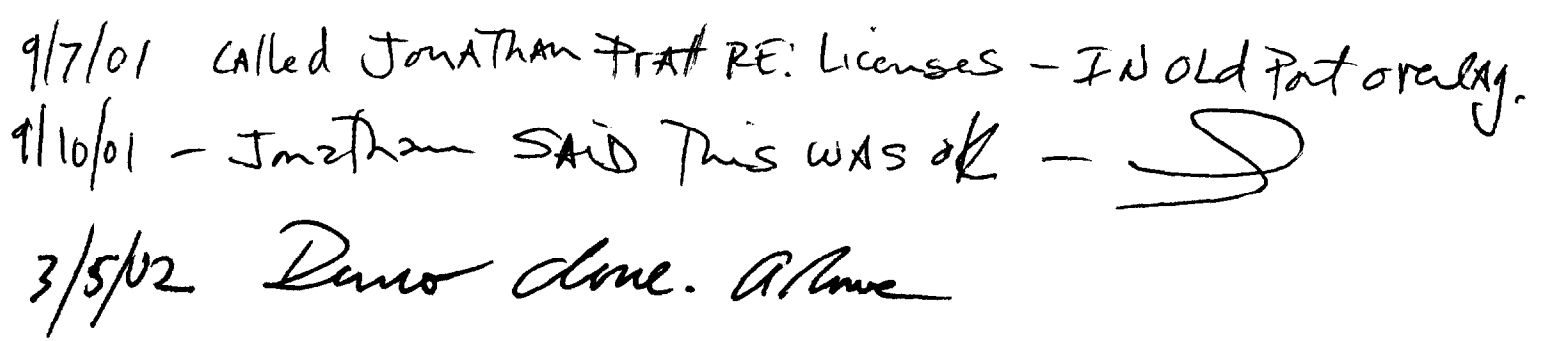 9/7/01 CAlled JonAThAn PrAtt RE: Licenses - IN OLd Port overlay.
9/10/01 - Jonathan SAiD This WAS OK -
3/5/02 Demo done.